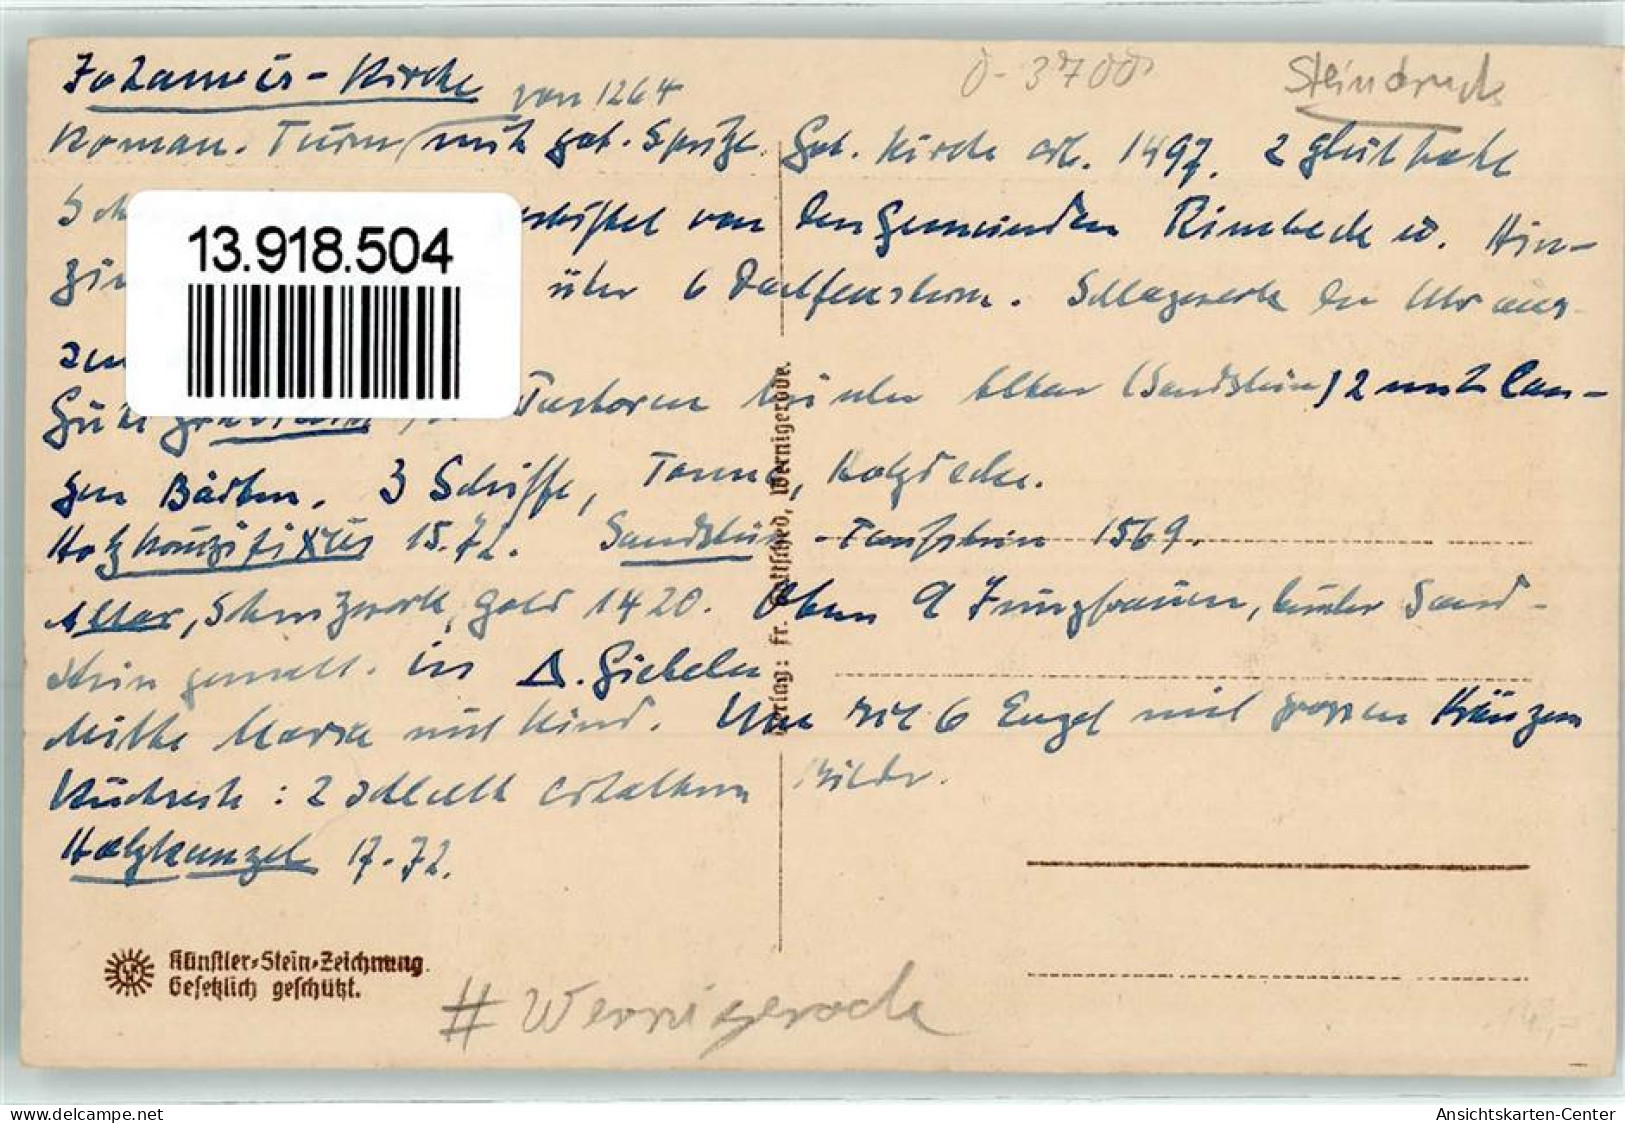 Johannis-Kirche von 1264
0-3700
Steindruck
Roman. Turm mit got. Spitze. Got. Kirche erb. 1497. 2
13.918.504
von den Gemeinden Rimbeck u. Hin-
Zin über 6 Schlagwerk der Uhr aus
zen
Gute Grabstein Pastoren hinter Altar (Sandstein) 2 mit lan-
gen Bärten. 3 Schiffe, Tonne, Holzdecke.
Holzkruzifixus 15.72. Sandstein-Taufstein 1569.
Altar, Schnitzwerk, Gold 1420. Oben 9 Jungfrauen, hinter Sand-
stein gemalt. in Δ. Giebeln
Mitte Maria mit Kind. Um sie 6 Engel mit grossen Kränzen
Rückseite: 2 schlecht erhaltene Bilder.
Holzkanzel 17.72.
Verlag: Fr. Gottsched, Wernigerode.
Künstler-Stein-Zeichnung.
Gesetzlich geschützt.
# Wernigerode
oldthing.de
Ansichtskarten-Center